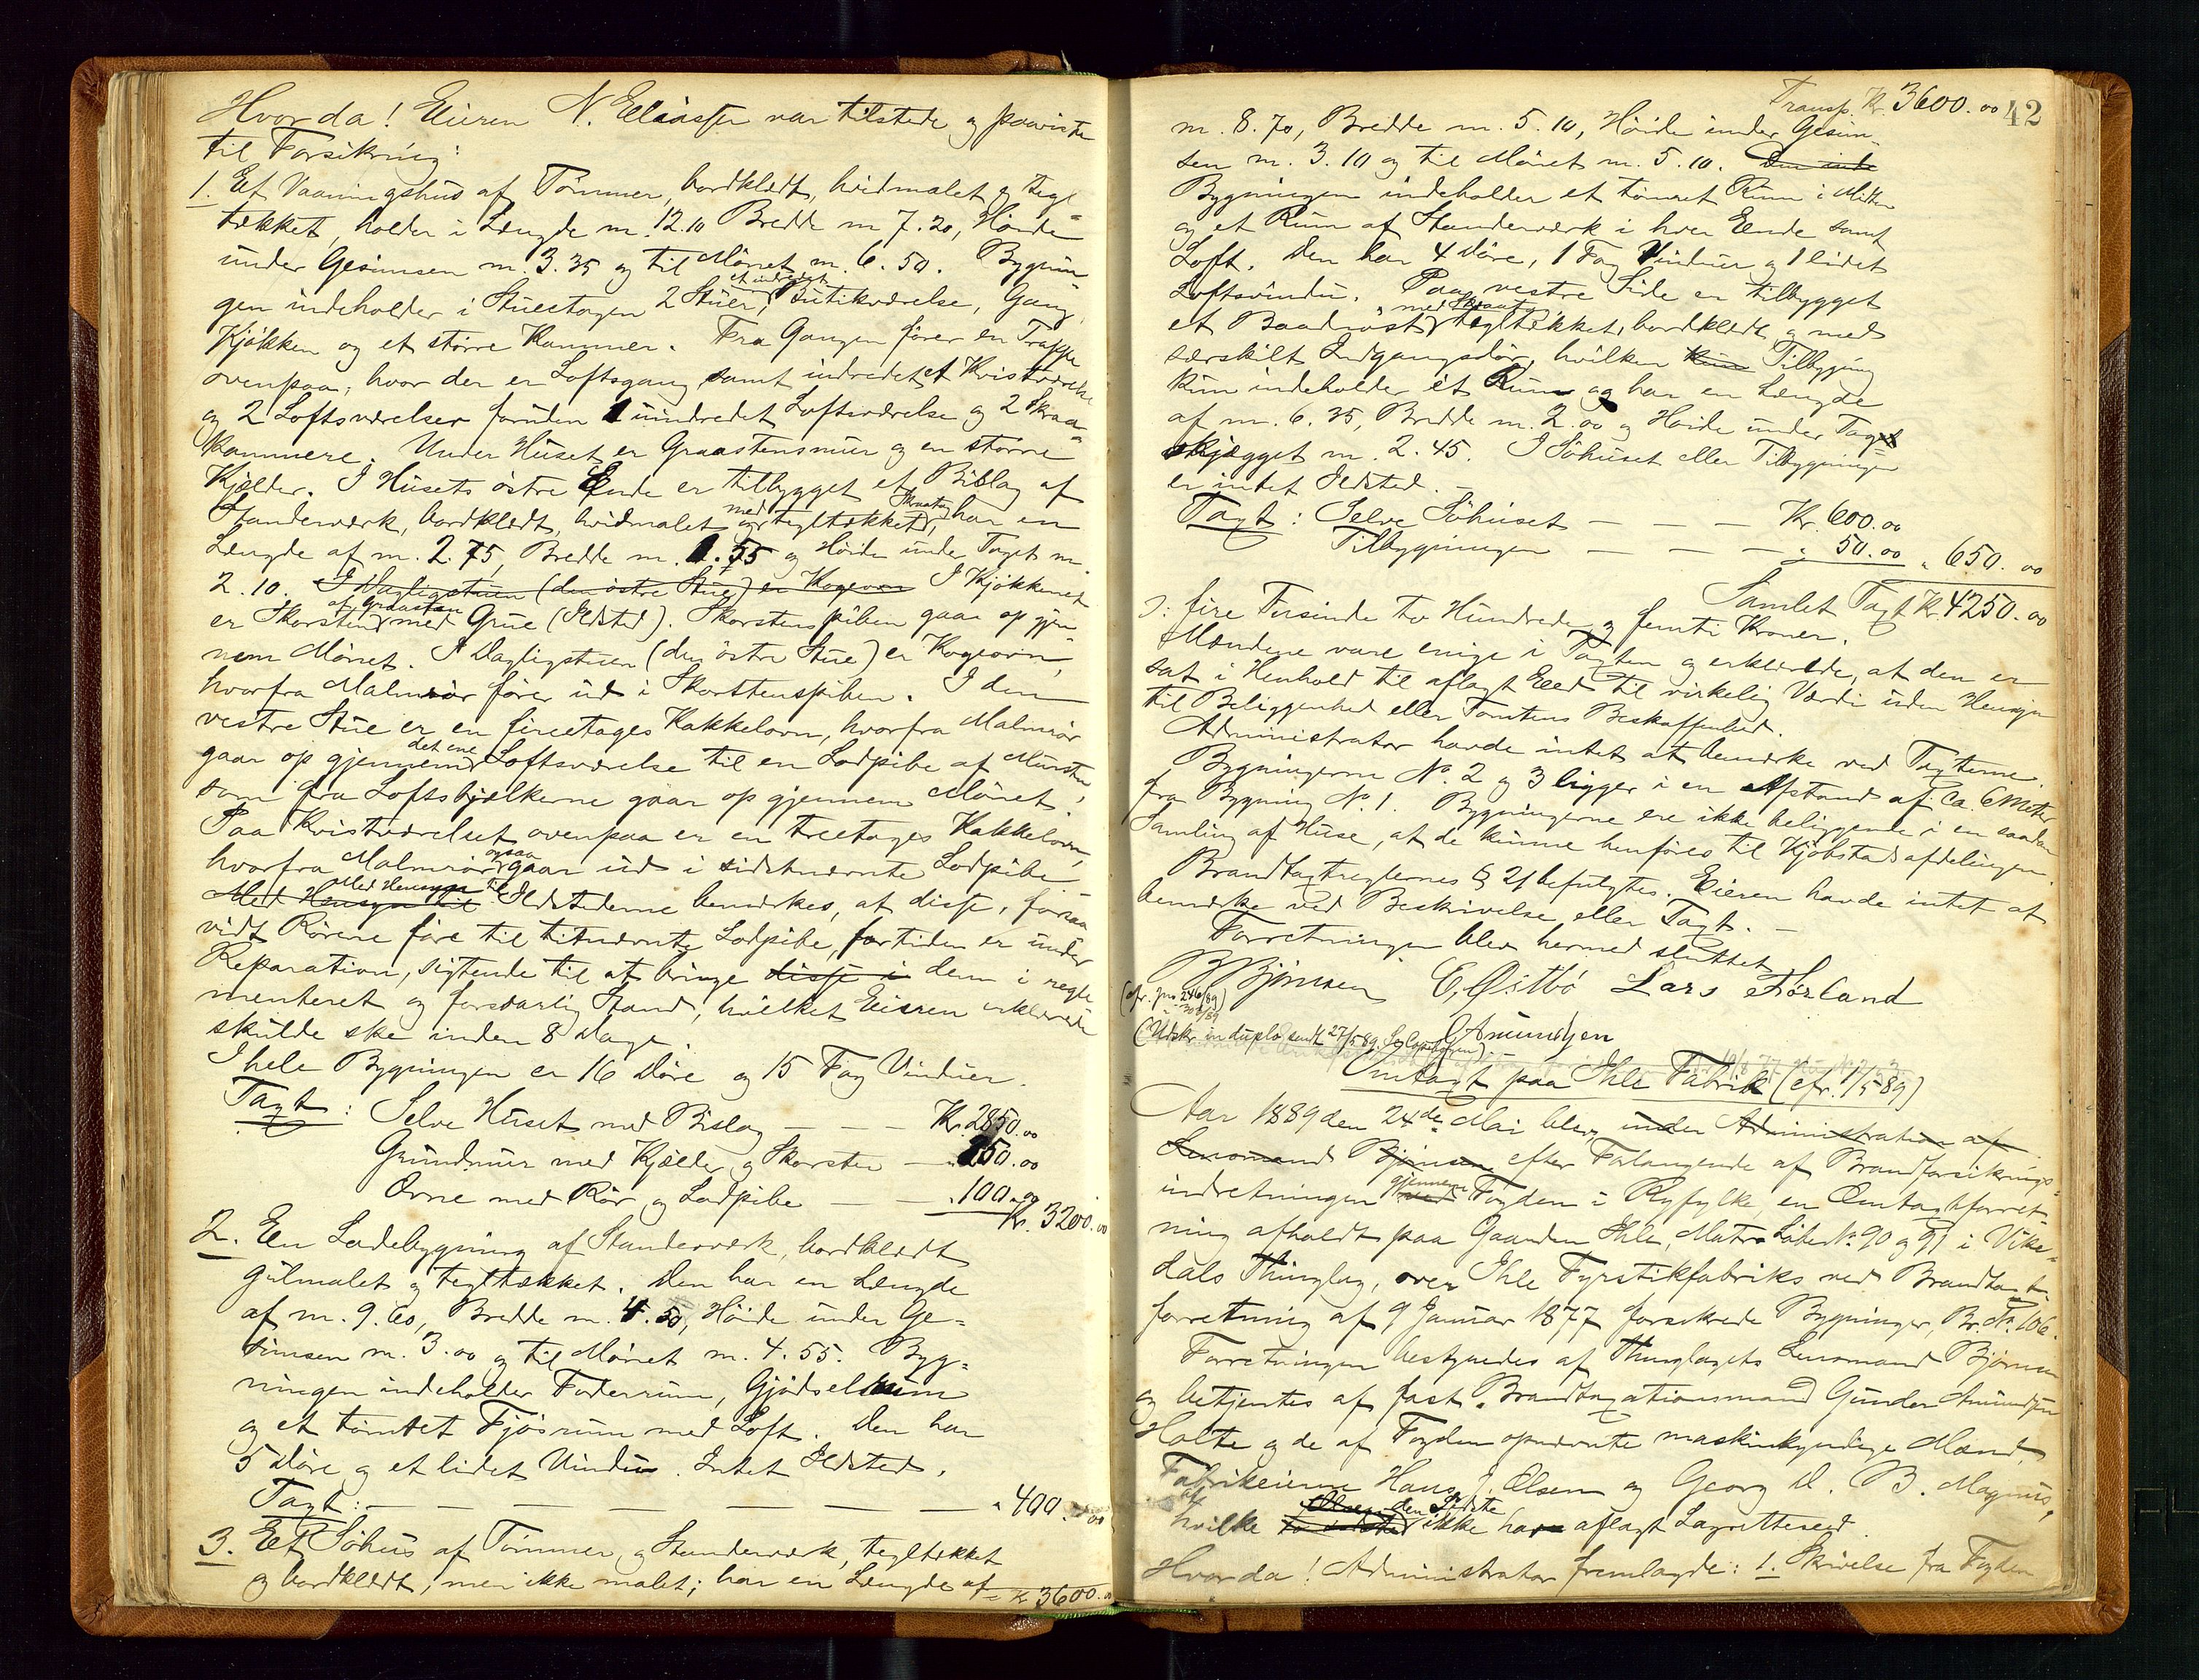 Hvorda! Eieren N. Eliassen var tilstede og paaviste
til Forsikring:
1. Et Vaaningshus af Tømmer, bordklædt, hvidmalet og tegl=
tækket, holder i Længde m. 12.10 Bredde m 7.20, Høide
under Gesimsen m. 3.35 og til Mønet m. 6.50. Bygnin
gen indeholder i Stueetagen 2 Stuer, et indredet Butikværelse, Gang,
Kjøkken og et større Kammer. Fra Gangen fører en Trappe
ovenpaa, hvor der er Loftsgang samt indredet et Kvistværelse
og 2 Loftsværelser foruden 1 uindredet Loftsværelse og 2 Skraa=
kammere. Under Huset er Graastensmur og en større
Kjælder. I Husets østre Ende er tilbygget et Bislag af
Standerværk, bordklædt, hvidmalet og med tegltækket Skraatag, har en
Længde af m. 2.75, Bredde m. 1.55 og Høide under Taget m.
2.10. I Dagligstuen (den østre Stue) er Kogeovn I Kjøkkenet
er Skorsten af Graasten med Grue (Ildsted). Skorstenspiben gaar op gjen
nem Mønet. I Dagligstuen (den østre Stue) er Kogeovn,
hvorfra Malmrør fører ud i Skorstenspiben. I den
vestre Stue er en fireetages Kakkelovn, hvorfra Malmrør
gaar op gjennem det ene Loftsværelse til en Lodpibe af Mursten,
som fra Loftsbjælkerne gaar op gjennem Mønet.
Paa Kvistværelset ovenpaa er en treetages Kakkelovn,
hvorfra Malmrør ogsaa gaar ud i sidstnævnte Lodpibe
Med Hensyn til Med Hensyn til Ildstederne bemærkes, at disse, forsaa
vidt Rørene føre til titnævnte Lodpibe, for tiden er under
Reparation, sigtende til at bringe disse i dem i regle
menteret og forsvarlig Stand, hvilket Eieren erklærede
skulde ske inden 8 Dage.
I hele Bygningen er 16 Døre og 15 Fag Vinduer.
Taxt: Selve Huset med Bislag — — — Kr. 2850.00
Grundmur med Kjælder og Skorsten — 250.00
Ovne med Rør og Lodpibe — — " 100.00
Kr. 3200.00
2. En Ladebygning af Standerværk, bordklædt
gulmalet og tegltækket. Den har en Længde
af m. 9.60, Bredde m. 4.50, Høide under Ge=
simsen m. 3.00 og til Mønet m. 4.55. Byg=
ningen indeholder Foderrum, Gjødselrum
og et tømret Fjøsrum med Loft. Den har
5 Døre og et lidet Vindu. Intet Ildsted.
Taxt: — — — — — — — " 400.00
3. Et Søhus af Tømmer og Standerværk, tegltækket
og bordklædt, men ikke malet; har en Længde af
Kr 3600.00
Transp. Kr. 3600.00 42
m. 8.70, Bredde m. 5.10, Høide under Gesim
sen m. 3.10 og til Mønet m. 5.10. Den inde
Bygningen indeholder et tømret Rum i Midten
og et Rum af Standerværk i hver Ende samt
Loft. Den har 4 Døre, 1 Fag Vinduer og 1 lidet
Loftsvindu. Paa vestre Side er tilbygget
et Baadnøst med Skraatag tegltækket, bordklædt og med
særskilt Indgangsdør, hvilken kun Tilbygning
kun indeholder et Rum og har en Længde
af m. 6.35, Bredde m. 2.00 og Høide under Tag
skjægget m. 2.45. I Søhuset eller Tilbygningen
er intet Ildsted. —
Taxt: Selve Søhuset — — — Kr. 600.00
Tilbygningen — — — " 50.00 " 650.00
Samlet Taxt Kr. 4250.00
ɔ: fire Tusinde to Hundrede og femti Kroner.
Mændene vare enige i Taxten og erklærede, at den er
sat i Henhold til aflagt Eed til virkelig Værdi uden Hensyn
til Beliggenhed eller Tomtens Beskaffenhed.
Administrator havde intet at bemærke ved Taxterne.
Bygningerne No. 2 og 3 ligger i en Afstand af ca. 6 Meter
fra Bygning No. 1. Bygningerne ere ikke beliggende i en saadan
Samling af Huse, at de kunne henføres til Kjøbstadsafdelingen.
Brandtaxtreglernes § 21 befulgtes. Eieren havde intet at
bemærke ved Beskrivelse eller Taxt. —
Forretningen blev hermed sluttet.
B Bjørnsen E. Østbø Lars Førland
(cfr. Jno 246/89)
308/89
G Amundsen
(Udskr. in duplo sendt 27/5 89.
Omtaxt paa Ihle Fabrik (cfr. 1/5-89)
Aar 1889 den 24de Mai blev, under Administration af
Lensmand Bjørnsen efter Forlangende af Brandforsikrings=
indretningen gjennem ved Fogden i Ryfylke, en Omtaxtforret=
ning afholdt paa Gaarden Ihle, Matr. Løbe No. 90 og 91 i Vike=
dals Thinglag, over Ihle Fyrstikfabriks ved Brandtaxt-
forretning af 9 Januar 1877 forsikrede Bygninger, Br. No. 106.
Forretningen bestyredes af Thinglagets Lensmand Bjørnsen
og betjentes af fast Brandtaxationsmand Gunder Amundsen
Holte og de af Fogden opnævnte maskinkyndige Mænd,
Fabrikeierne Hans J. Olsen og Georg D. B. Magnus,
af hvilke to sidste Olsen den Sidste ikke have aflagt Lagretteseed.
Hvorda! Administrator fremlagde: 1. Skrivelse fra Fogden